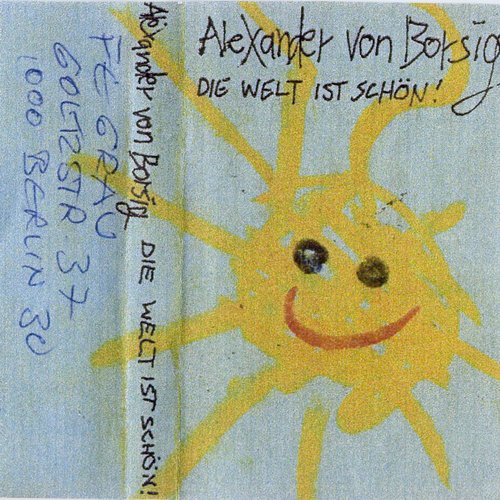 Alexander von Borsig
DIE WELT IST SCHÖN!
Alexander von Borsig DIE WELT IST SCHÖN!
FÉ GRAU
GOLTZSTR 37
1000 BERLIN 30